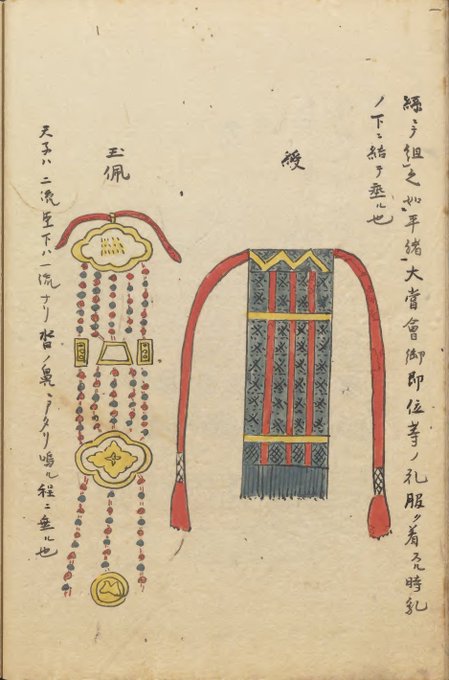 綬
絲ニテ組之如平緒大嘗會御即位等ノ礼服ヲ着スル時乳
ノ下ニ結テ垂ル也
玉佩
天子ハ二流臣下ハ一流ナリ沓ノ鼻ニアタリ鳴ル程ニ垂ル也